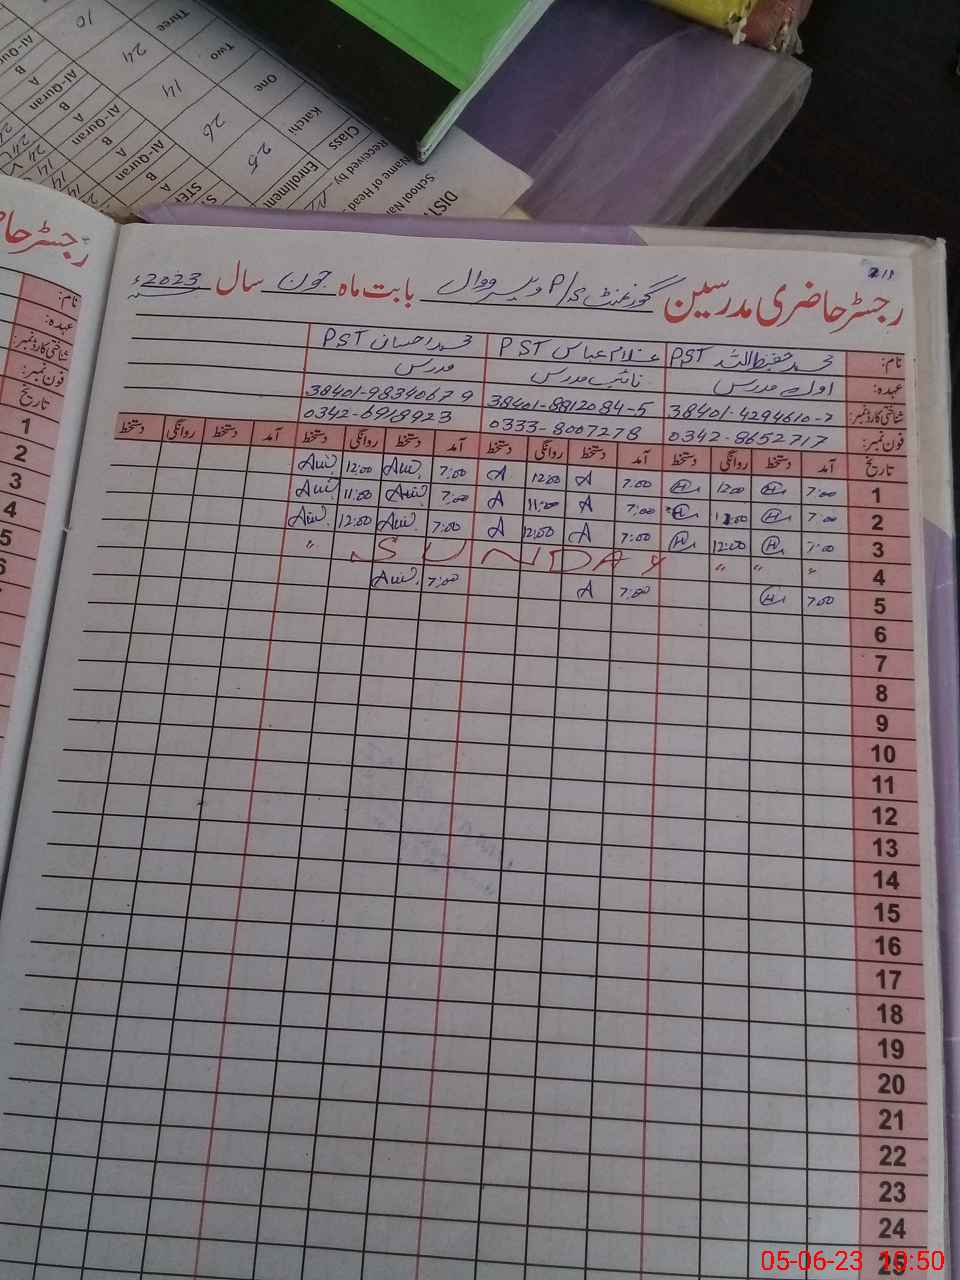 رجسٹر حاضری مدرسین گورنمنٹ P/S ویروال بابت ماہ جون سال 2023ء
نام: محمد حفیظ اللہ PST غلام عباس PST محمد احسان PST
عہدہ: اول مدرس نائب مدرس مدرس
شناختی کارڈ نمبر: 38401-4294610-7 38401-8812084-5 38401-9834067-9
فون نمبر: 0342-8652717 0333-8007278 0342-6918923
تاریخ آمد دستخط روانگی دستخط آمد دستخط روانگی دستخط آمد دستخط روانگی دستخط آمد دستخط روانگی دستخط
1 7:00 12:00 7:00 A 12:00 A 7:00 12:00
2 7:00 11:00 7:00 A 11:00 A 7:00 11:00
3 7:00 12:00 7:00 A 12:00 A 7:00 12:00
4 " " " SUNDAY "
5 7:00 7:00 A 7:00
6
7
8
9
10
11
12
13
14
15
16
17
18
19
20
21
22
23
24
25
رجسٹر حا
نام:
عہدہ:
شناختی کارڈ نمبر:
فون نمبر:
تاریخ
1
2
3
4
5
6
School Nam
Name of Head
Received by
Class Enrolment
Katchi 25
One 26
Two 14
Three 24
10
Al-Quran
A
B
Al-Quran
A
B
Al-Quran
A
B
Al-Quran
A
05-06-23 10:50